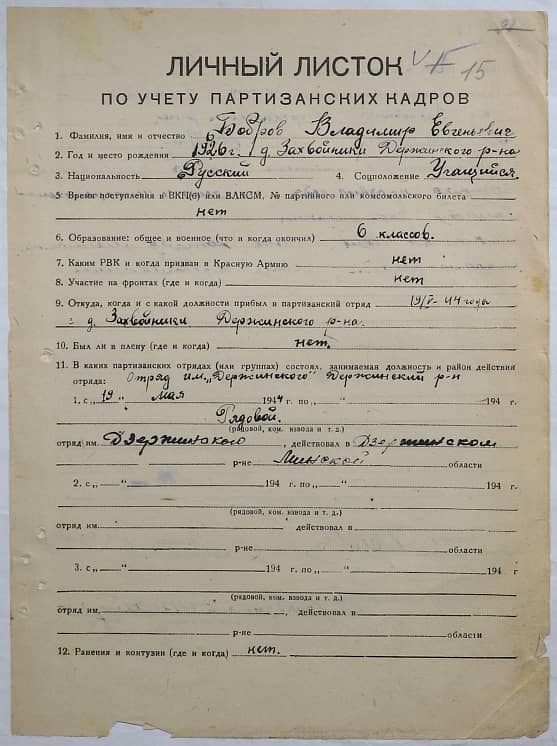 V 15 15
ЛИЧНЫЙ ЛИСТОК
ПО УЧЕТУ ПАРТИЗАНСКИХ КАДРОВ
1. Фамилия, имя и отчество Бобров Владимир Евгеньевич
2. Год и место рождения 1926 г. д. Захвойники Держинского р-на
3. Национальность Русский 4. Соцположение Учащийся.
5 Время поступления в ВКП(б) или ВЛКСМ, № партийного или комсомольского билета
нет
6. Образование: общее и военное (что и когда окончил) 6 классов.
7. Каким РВК и когда призван в Красную Армию нет
8. Участие на фронтах (где и когда) нет
9. Откуда, когда и с какой должности прибыл в партизанский отряд 19/V-44 годы
д. Захвойники Держинского р-на.
10. Был ли в плену (где и когда) нет.
11. В каких партизанских отрядах (или группах) состоял, занимаемая должность и район действия
отряда: Отряд им. „Держинского" Держинский р-н
1. с „19" мая 1944 г. по „ " 194 г.
Рядовой.
(рядовой, ком. взвода и т. д.)
отряд им. Дзержинского, действовал в Дзержинском
р-не Минской области
2. с „ " 194 г. по „ " 194 г.
(рядовой, ком. взвода и т. д.)
отряд им. действовал в
р-не области
3. с „ " 194 г. по „ " 194 г
(рядовой, ком. взвода и т. д.)
отряд им. , действовал в
р-не области
12. Ранения и контузии (где и когда) нет.